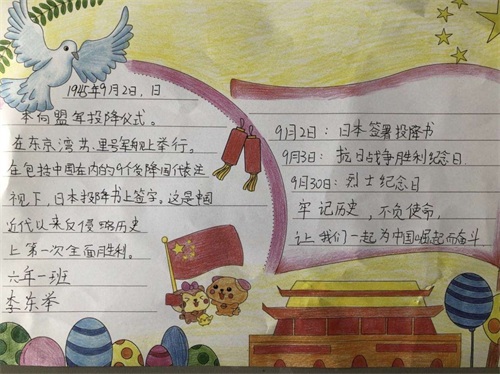 1945年9月2日，日
本向盟军投降仪式。
在东京湾苏里号军舰上举行。
在包括中国在内的9个受降国代表注
视下，日本投降书上签字。这是中国
近代以来反侵略历史
上第一次全面胜利。
六年一班
李东举
9月2日：日本签署投降书
9月3日：抗日战争胜利纪念日
9月30日：烈士纪念日
牢记历史，不负使命，
让我们一起为中国崛起而奋斗